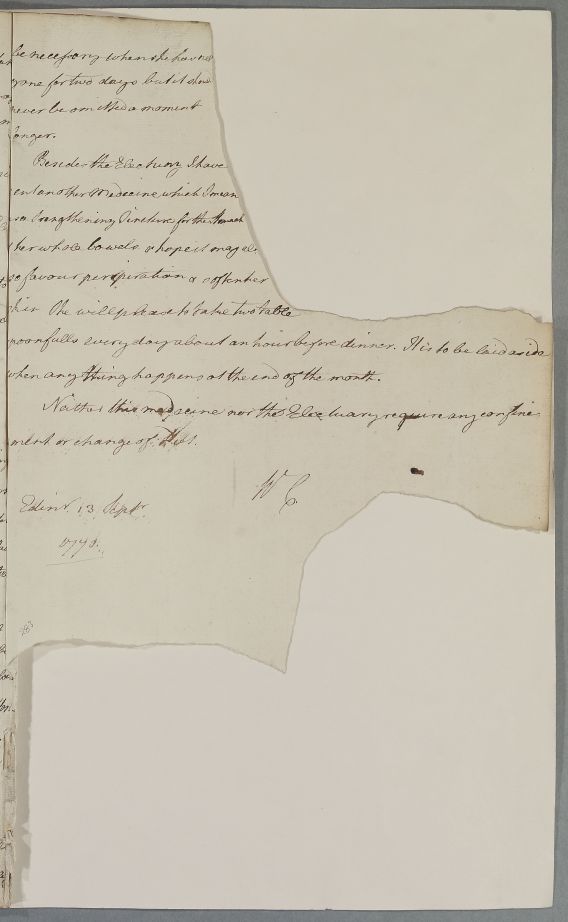 be necessary when she has not
gone for two days but it should
never be omitted a moment
longer.
Besides the Electuary I have
sent another Medecine which I mean
as a Strengthening Tincture for the Stomach
& her whole bowels & hope it may al
so favour perspiration & soften her
skin She will please to take two table
spoonfulls every day about an hour before dinner. It is to be laid aside
when any thing happens at the end of the month.
Neither this medecine nor the Electuary require any confine
ment or change of Diet.
W C
Edinr. 13 Septr.